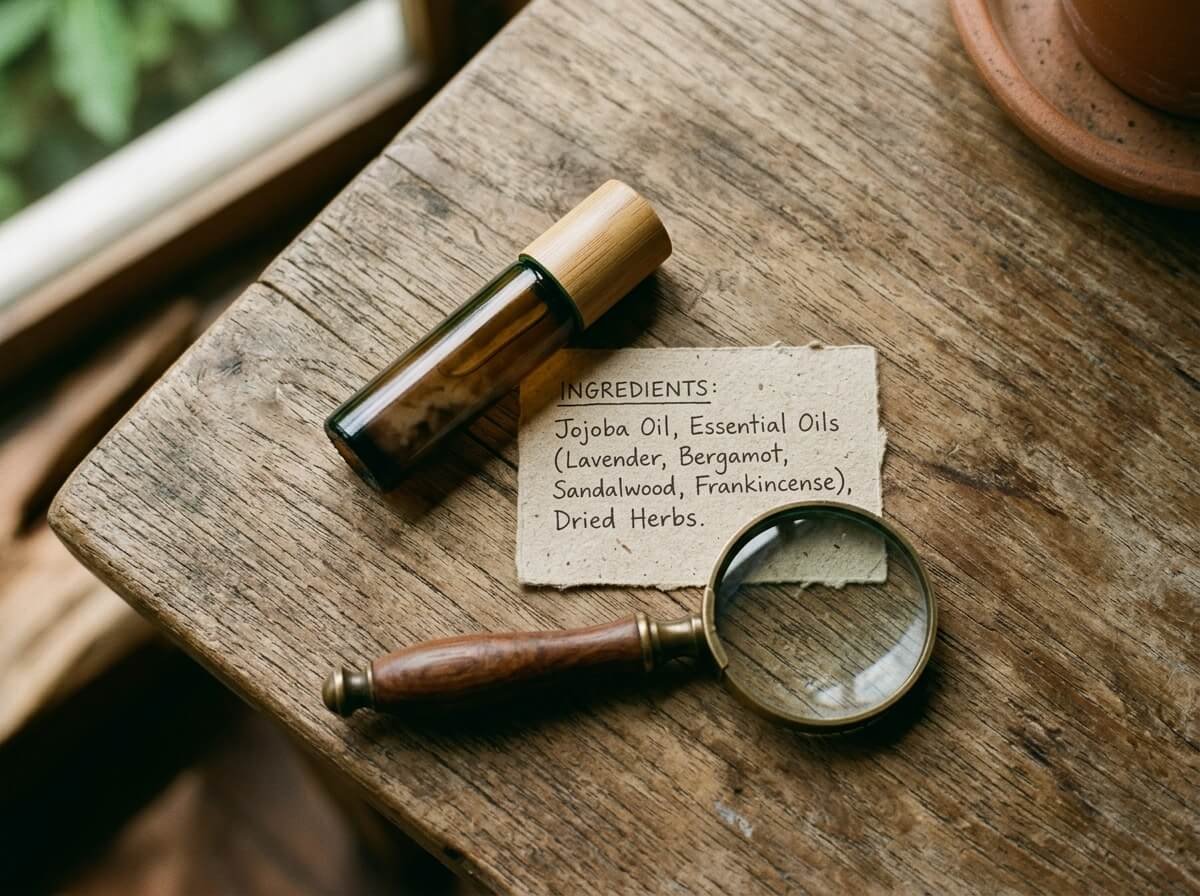 INGREDIENTS:
Jojoba Oil, Essential Oils
(Lavender, Bergamot,
Sandalwood, Frankincense),
Dried Herbs.